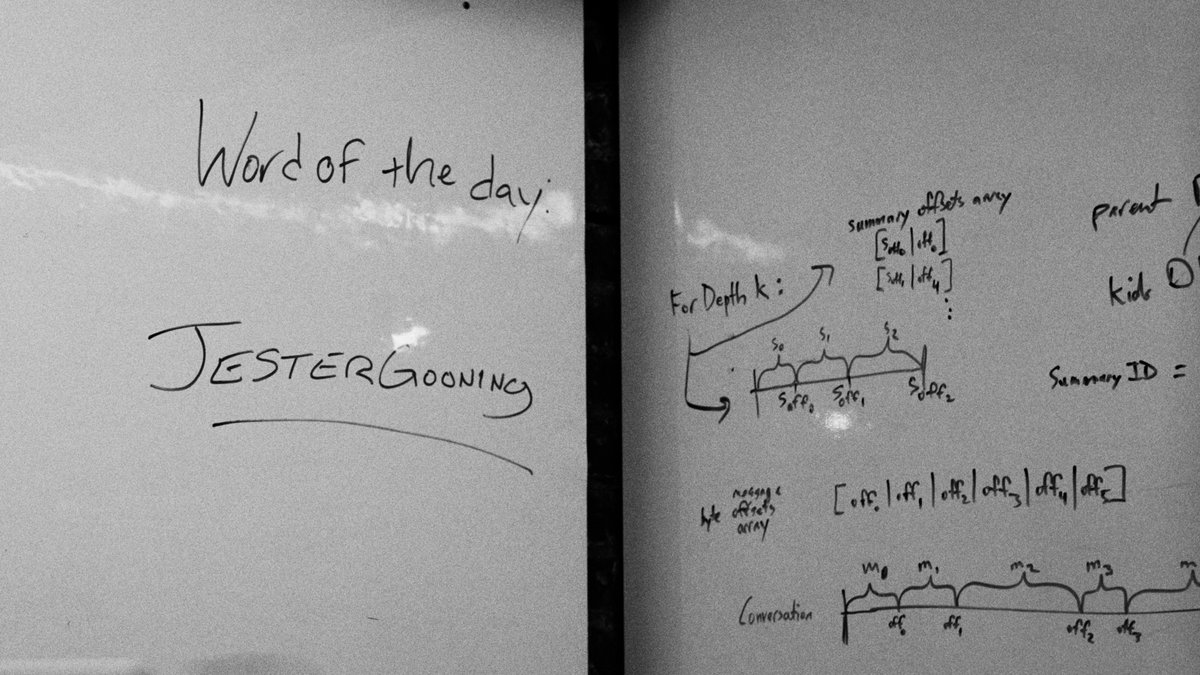 Word of the day:
JESTERGOONING
summary offsets array
[Soff₀|off₀]
[Soff₁|off₄]
⋮
For Depth k:
S₀ S₁ S₂
Soff₀ Soff₁ Soff₂
parent
kids
Summary ID =
byte message offsets array
[off₀|off₁|off₂|off₃|off₄|off₅]
m₀ m₁ m₂ m₃ m
Conversation
off₀ off₁ off₂ off₃